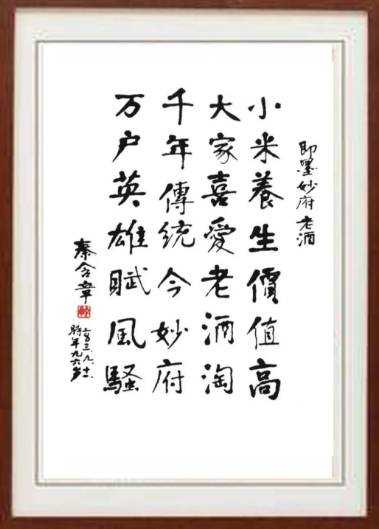 即墨妙府老酒
小米養生價值高
大家喜愛老酒淘
千年傳統今妙府
万户英雄賦風騷
秦含章
時年九六岁